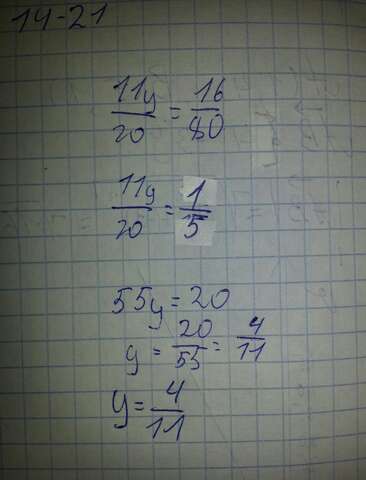 14-21
11y/20 = 16/80
11y/20 = 1/5
55y = 20
y = 20/55 = 4/11
y = 4/11